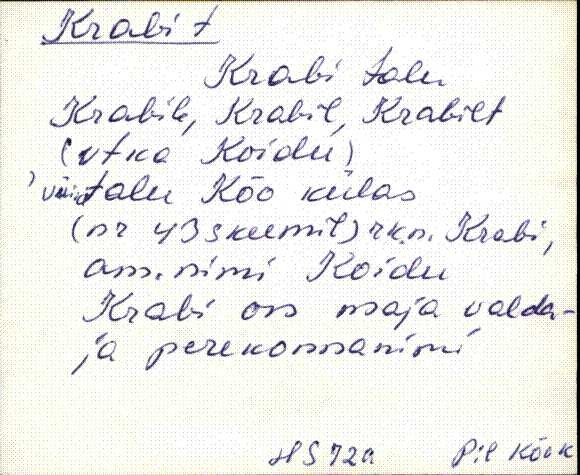 Krabi t
Krabi talu
Krabile, Krabil, Krabilt
(vt ka Koidu)
talu Kõo külas
(nr 43 skeemil) rkp. Krabi,
am. nimi Koidu
Krabi on maja valda-
ja perekonnanimi
HS 72a Pil Kõok